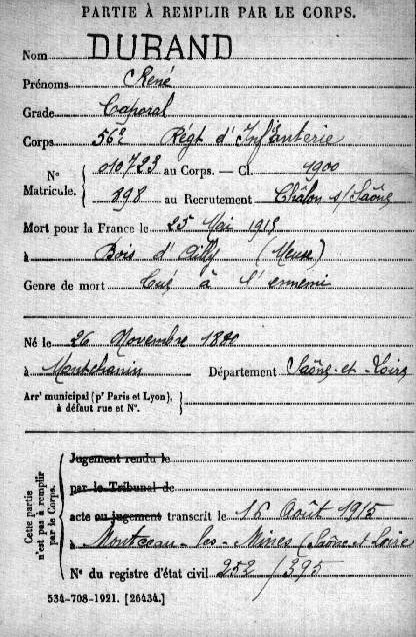 PARTIE À REMPLIR PAR LE CORPS.
Nom DURAND
Prénoms René
Grade Caporal
Corps 56e Régt d'Infanterie
N° Matricule. { 010723 au Corps. — Cl. 1900
898 au Recrutement Châlon s/ Saône
Mort pour la France le 25 Mai 1915
à Bois d'Ailly (Meuse)
Genre de mort Tué à l'ennemi
Né le 26 Novembre 1880
à Montchanin Département Saône-et-Loire
Arr' municipal (p' Paris et Lyon), à défaut rue et N°. }
Cette partie n'est pas à remplir par le Corps.
Jugement rendu le
par le Tribunal de
acte ou jugement transcrit le 16 Août 1915
à Montceau-les-Mines (Saône et Loire
N° du registre d'état civil 252 / 395
534-708-1921. [26434.]